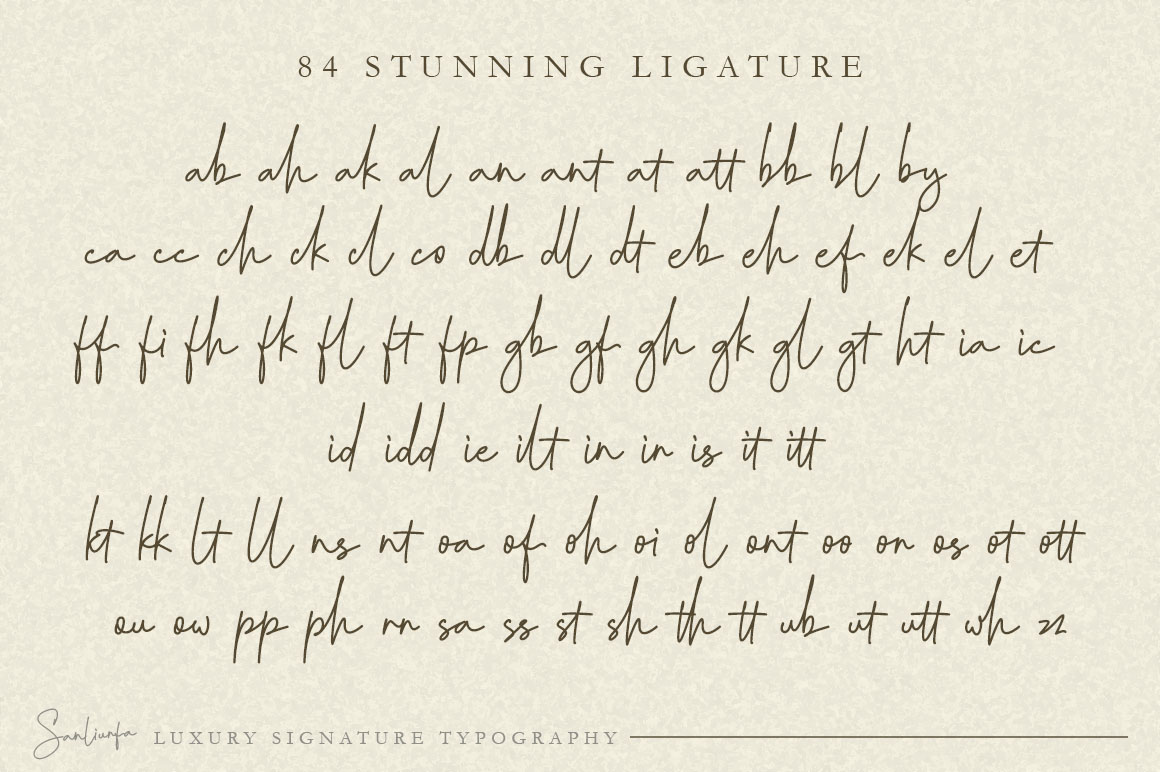 84 STUNNING LIGATURE
ab ah ak al an ant at att bb bl by
ca cc ch ck cl co db dl dt eb eh ef ek el et
ff fi fh fk fl ft fp gb gf gh gk gl gt ht ia ic
id idd ie ilt in in is it itt
kt kk lt ll ns nt oa of oh oi ol ont oo on os ot ott
ou ow pp ph rn sa ss st sh th tt ub ut utt wh zz
Sanliunfa LUXURY SIGNATURE TYPOGRAPHY